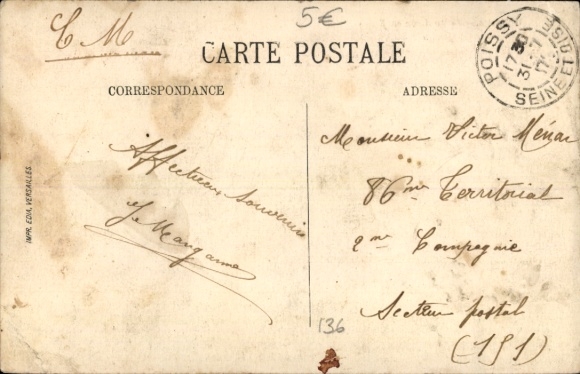 5€
C M
CARTE POSTALE
POISSY
17 30
31 - 7
17
SEINE ET OISE
CORRESPONDANCE
ADRESSE
Affectueux Souvenirs
Monsieur Victor
86me Territorial
2me Compagnie
Secteur postal
(151)
IMPR. EDIA, VERSAILLES.
136